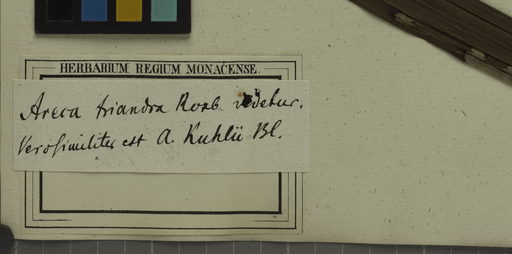 HERBARIUM REGIUM MONACENSE.
Areca triandra Roxb videtur.
Verosimiliter est A. Kuhlii Bl.